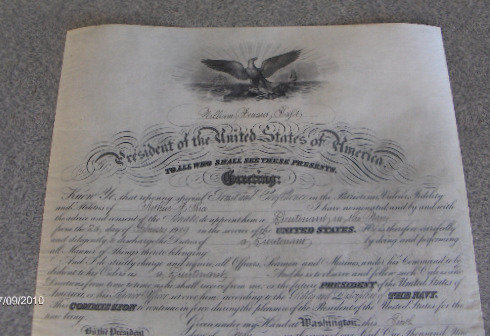 William Howard Taft,
President of the United States of America.
TO ALL WHO SHALL SEE THESE PRESENTS,
Greeting:
Know Ye, that reposing special Trust and Confidence in the Patriotism, Valour, Fidelity
and Abilities of I have nominated and by and with
the advice and consent of the Senate do appoint him a Lieutenant in the Navy
from the day of 1909 in the service of the UNITED STATES. He is therefore carefully
and diligently to discharge the Duties of a Lieutenant by doing and performing
all Manner of Things thereto belonging.
And I do strictly charge and require all Officers, Seamen and Marines, under his Command to be
obedient to his Orders as a Lieutenant And he is to observe and follow such Orders and
Directions from time to time as he shall receive from me, or the future PRESIDENT of the United States of
America, or his Superior Officer set over him, according to the Rules and Discipline of THE NAVY.
COMMISSION to continue in force during the pleasure of the President of the United States for the
time being.
Given under my Hand at Washington, this
By the President in the year of our Lord One Thousand
7/09/2010